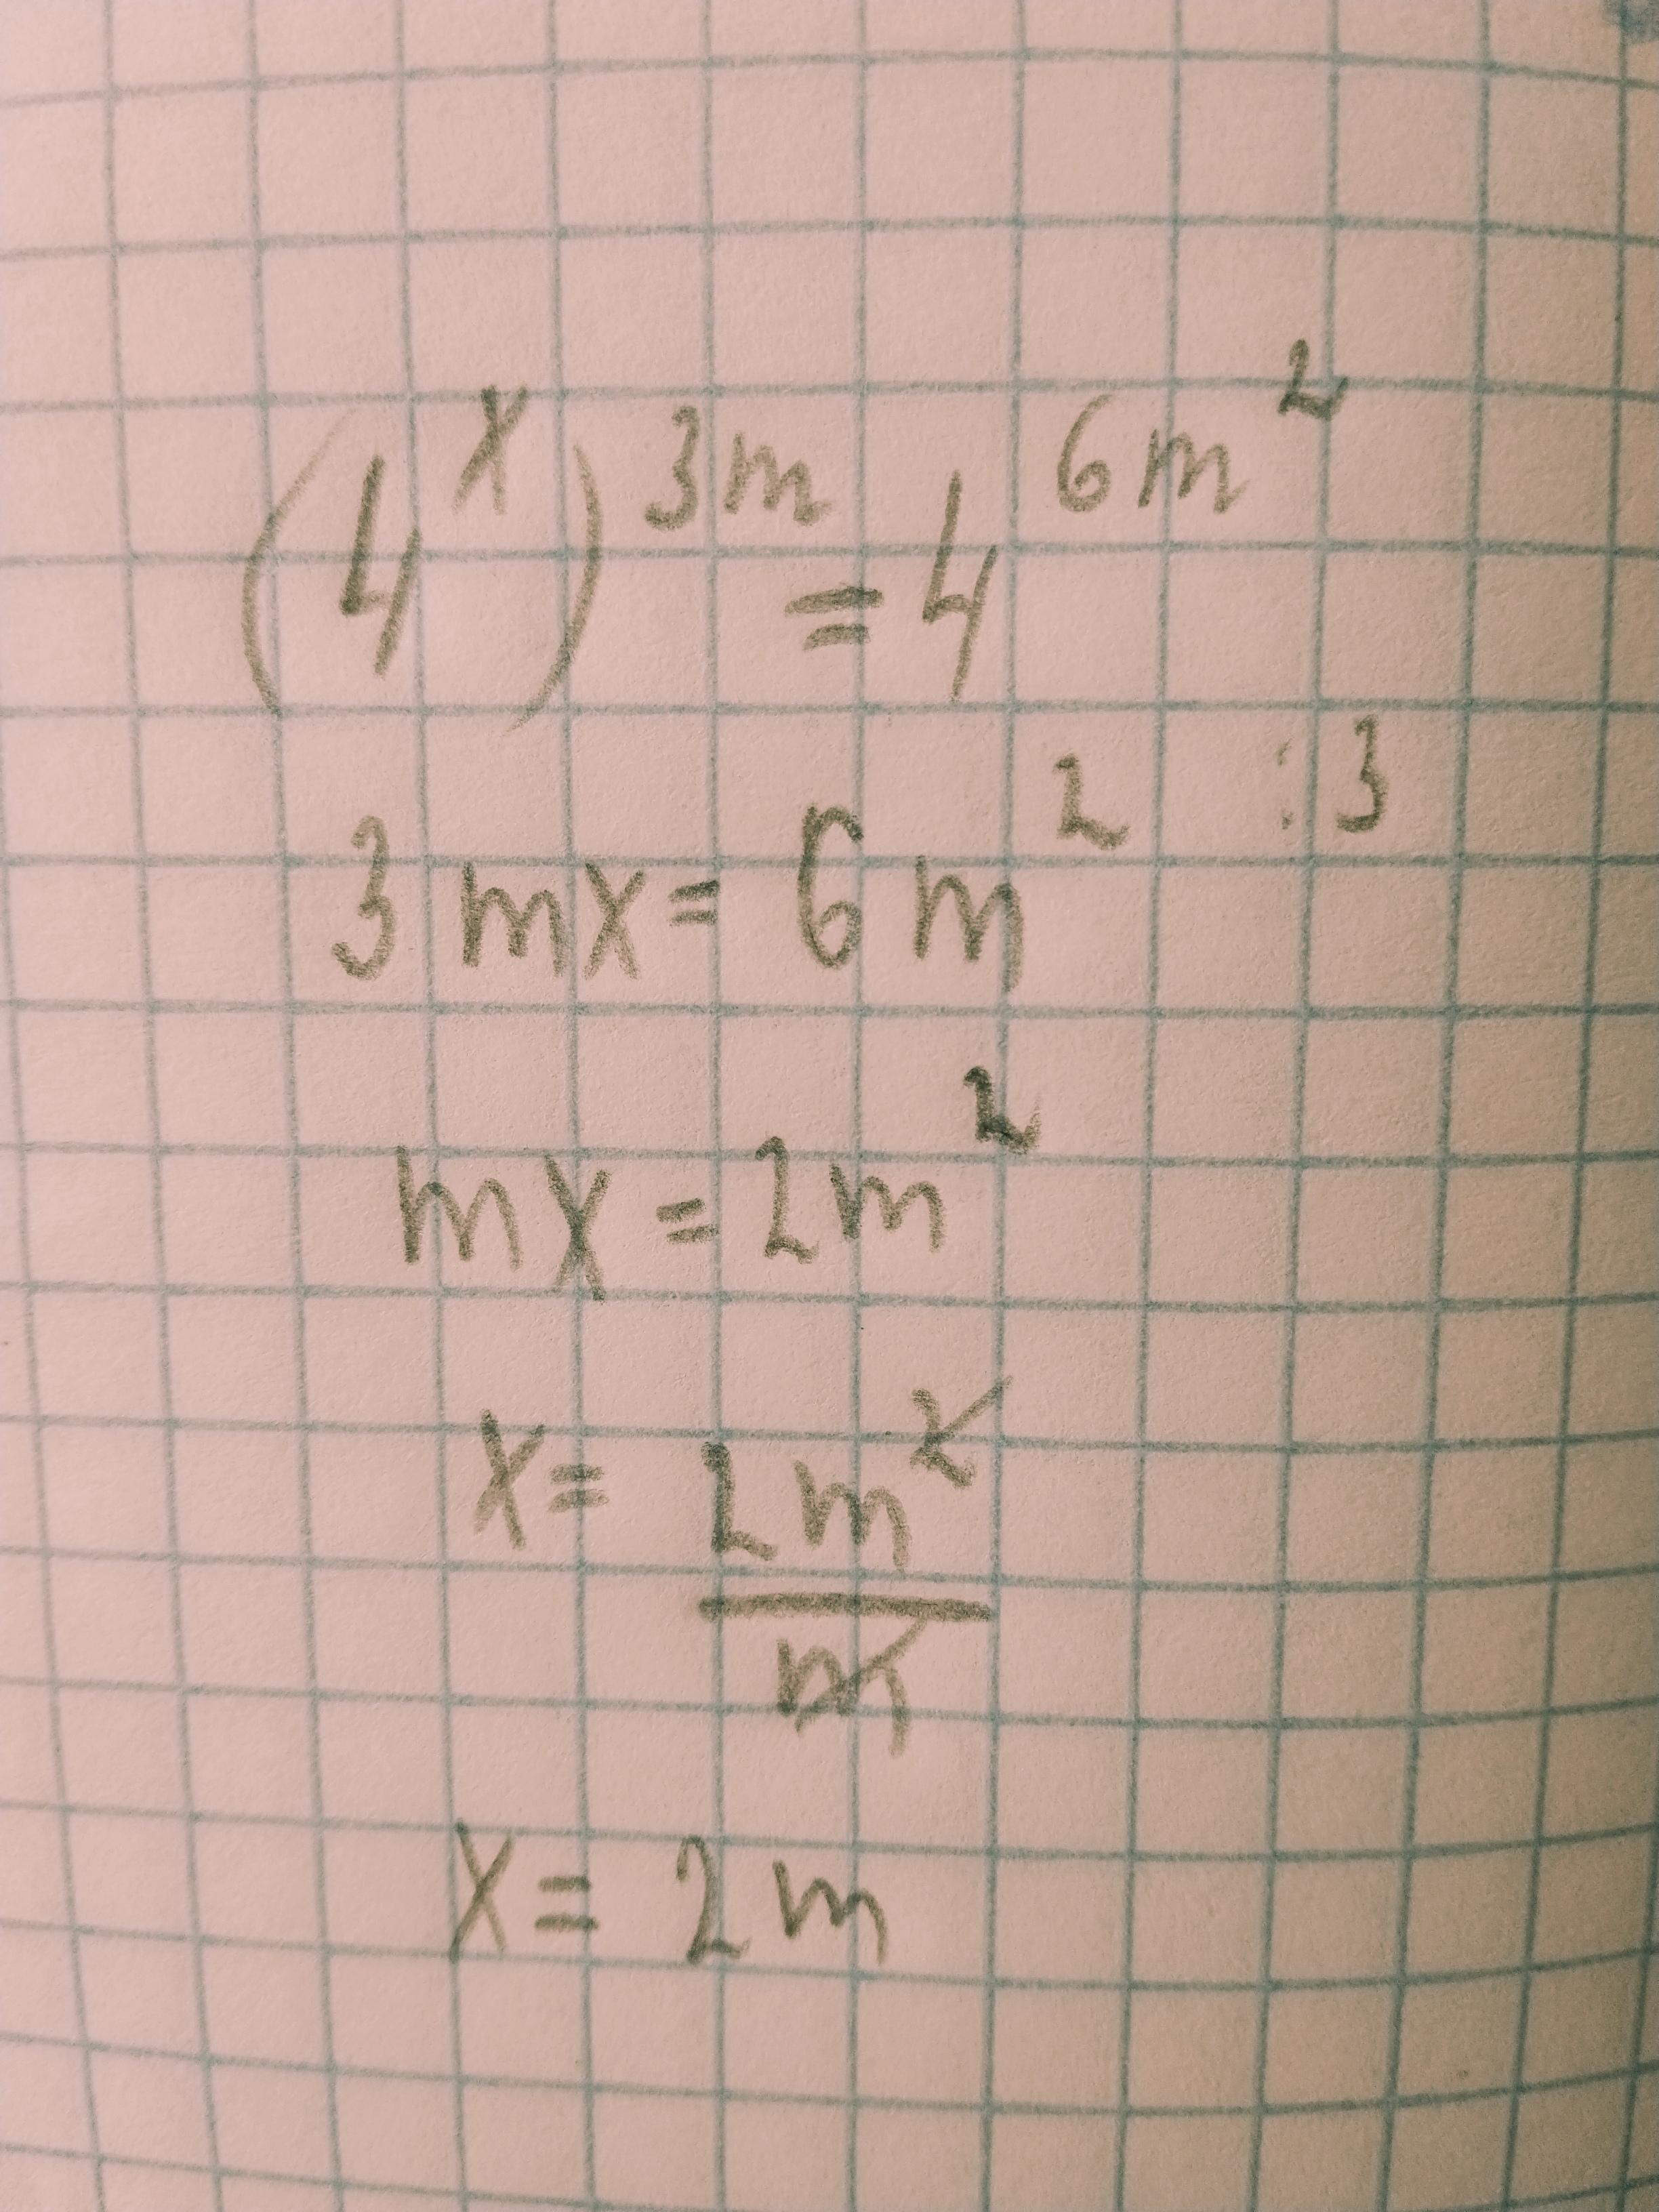 (4^x)^3m = 4^6m^2
3mx = 6m^2 :3
mx = 2m^2
x = 2m^2/m
x = 2m